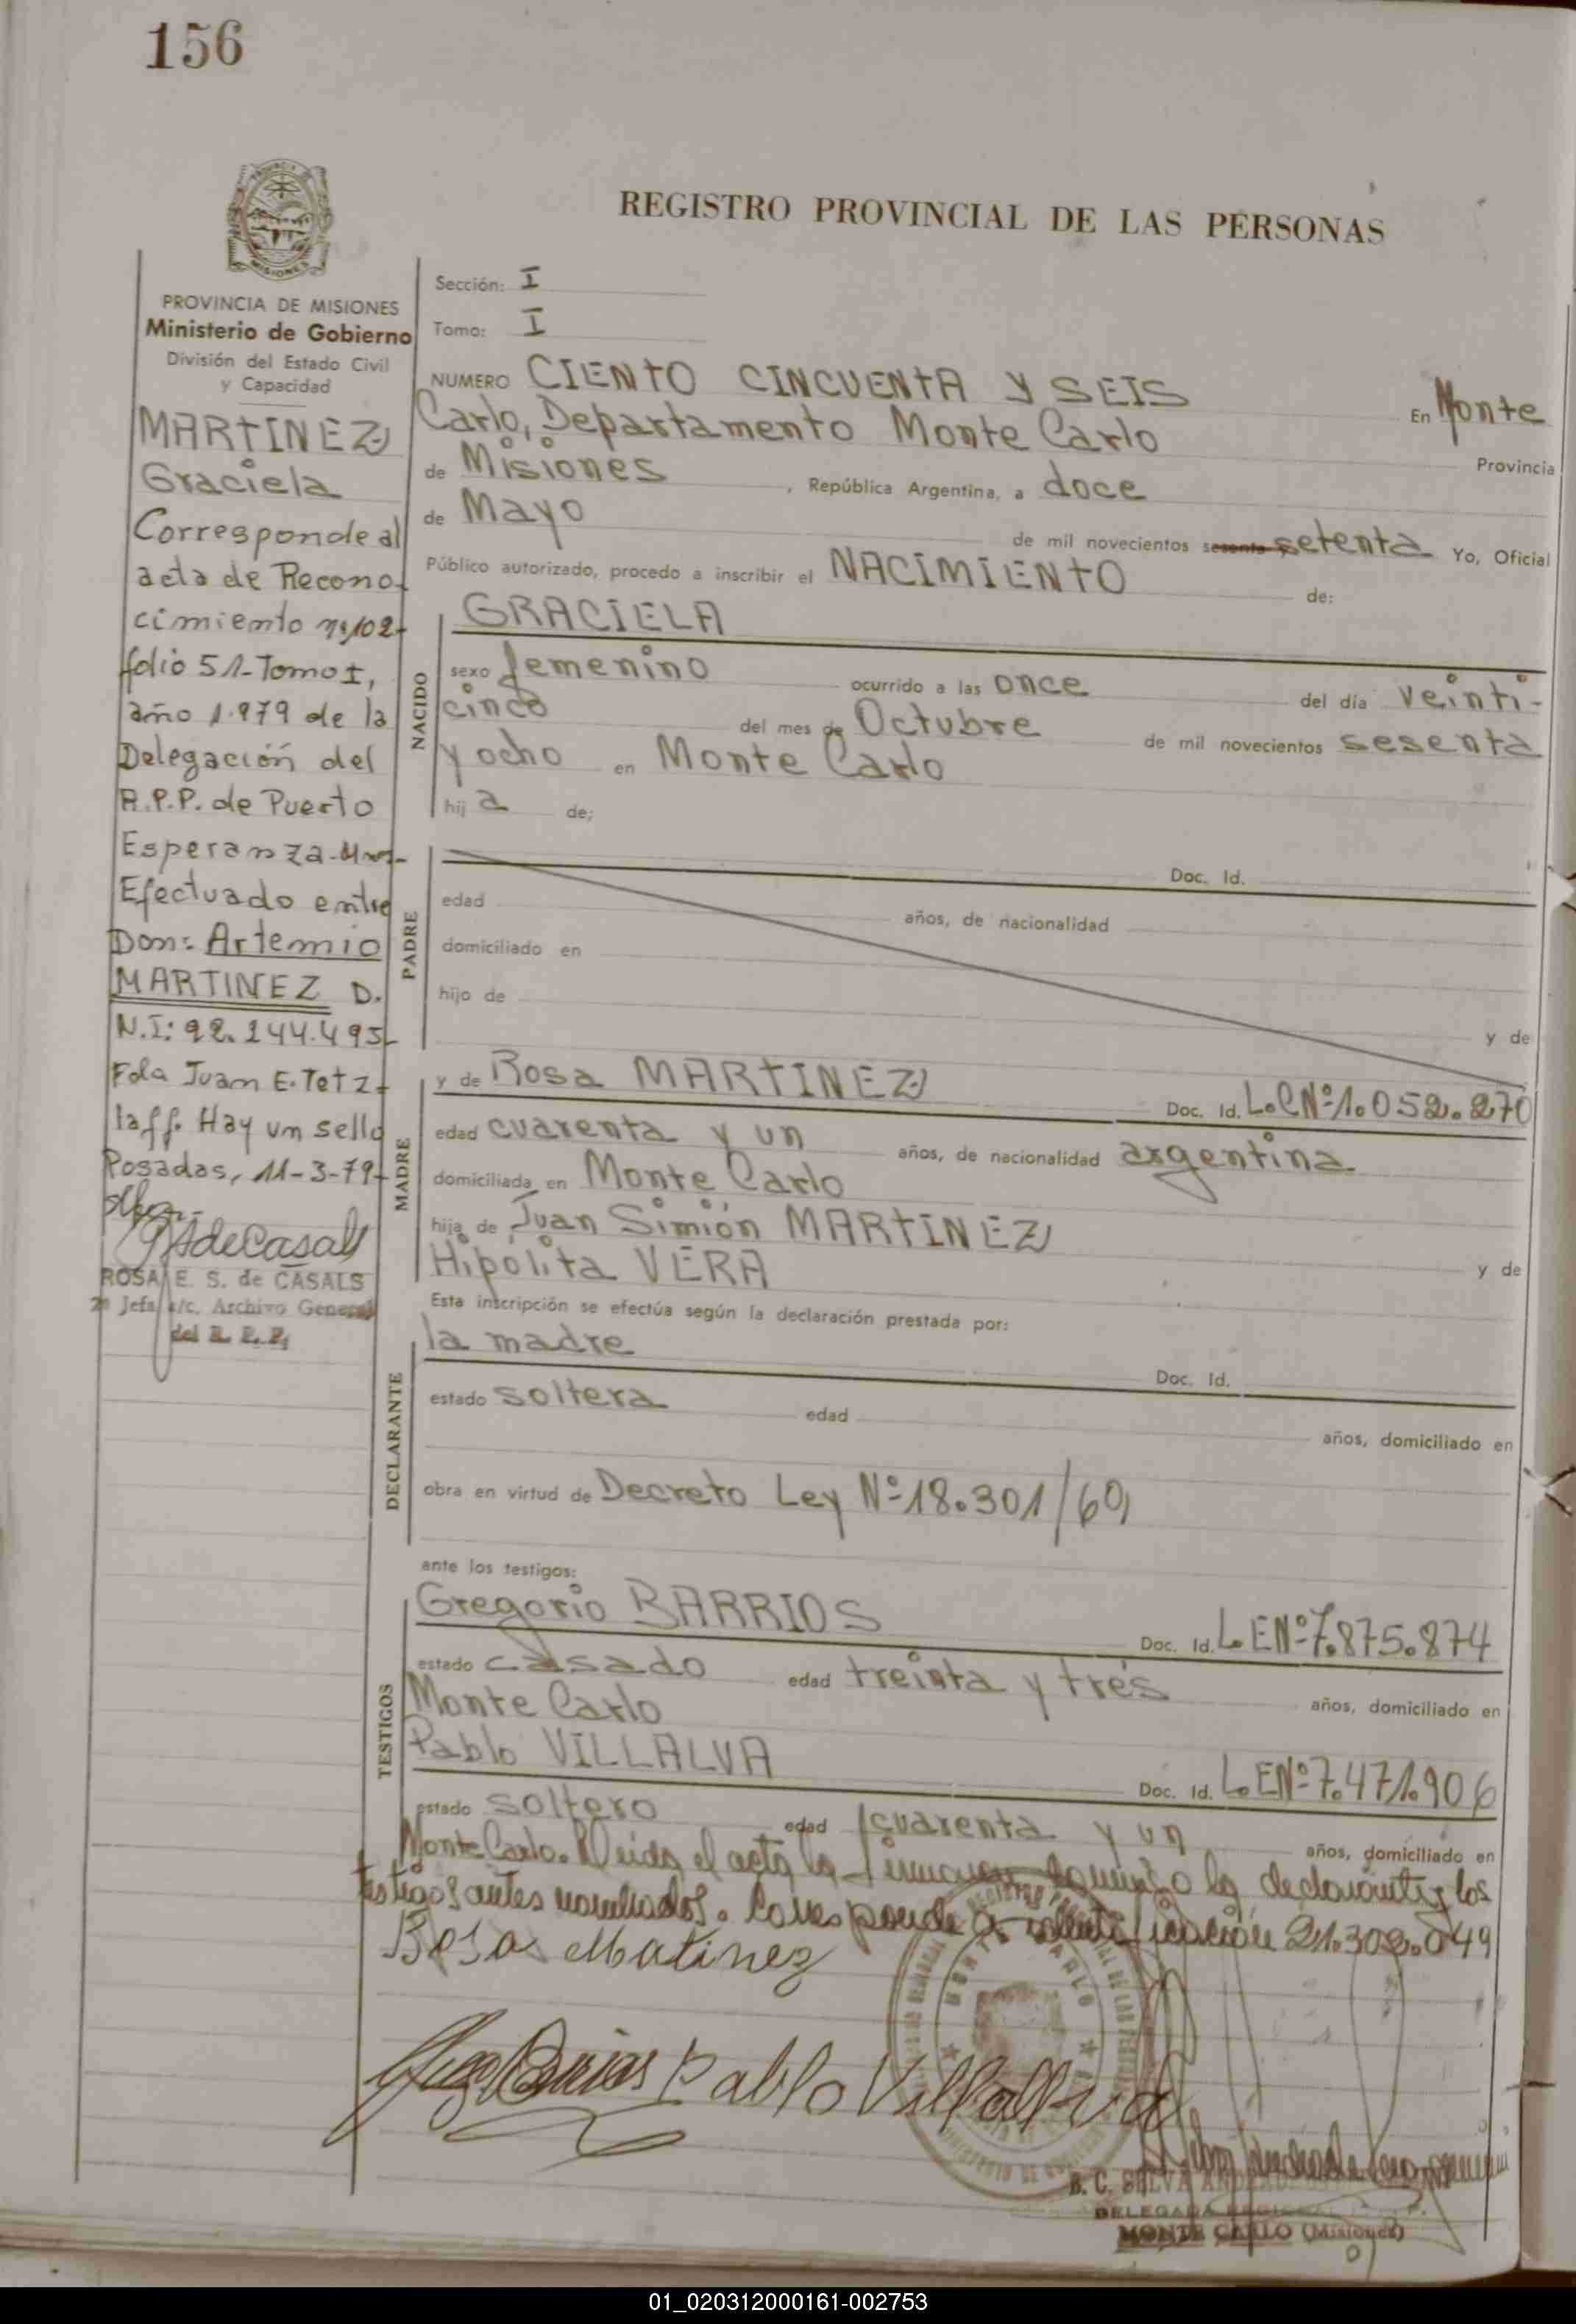 156
REGISTRO PROVINCIAL DE LAS PERSONAS
PROVINCIA DE MISIONES
Ministerio de Gobierno
División del Estado Civil
y Capacidad
MARTINEZ
Graciela
Corresponde al
acta de Recono-
cimiento nº 102-
folio 51-Tomo I,
año 1.979 de la
Delegación del
R.P.P. de Puerto
Esperanza-Mnes-
Efectuado entre
Don: Artemio
MARTINEZ D.
N.I: 92.244.495-
Fdo Juan E. Tetz-
laff. Hay un sello
Posadas, 11-3-79-
ROSA E. S. de CASALS
2ª Jefa a/c. Archivo General
del R. P. P.
Sección: I
Tomo: I
NUMERO CIENTO CINCUENTA Y SEIS En Monte
Carlo, Departamento Monte Carlo Provincia
de Misiones, República Argentina, a doce
de Mayo de mil novecientos sesenta setenta Yo, Oficial
Público autorizado, procedo a inscribir el NACIMIENTO de:
NACIDO
GRACIELA
sexo femenino ocurrido a las once del día veinti-
cinco del mes de Octubre de mil novecientos sesenta
y ocho en Monte Carlo
hij a de;
PADRE
Doc. Id.
edad años, de nacionalidad
domiciliado en
hijo de y de
MADRE
y de Rosa MARTINEZ Doc. Id. L.C Nº 1.052.270
edad cuarenta y un años, de nacionalidad argentina
domiciliada en Monte Carlo
hija de Juan Simión MARTINEZ y de
Hipólita VERA
Esta inscripción se efectúa según la declaración prestada por:
DECLARANTE
la madre Doc. Id.
estado soltera edad años, domiciliado en
obra en virtud de Decreto Ley Nº 18.301/69
ante los testigos:
TESTIGOS
Gregorio BARRIOS Doc. Id. L.E Nº 7.875.874
estado casado edad treinta y trés años, domiciliado en
Monte Carlo
Pablo VILLALVA Doc. Id. L.E Nº 7.471.906
estado soltero edad cuarenta y un años, domiciliado en
Monte Carlo. Leida el acta la firman conmigo la declarante y los
testigos antes nombrados. Corresponde a identificación 21.302.049
Rosa Matinez
Pablo Villalva
B. C. SELVA
DELEGADA
MONTE CARLO (Misiones)
01_020312000161-002753